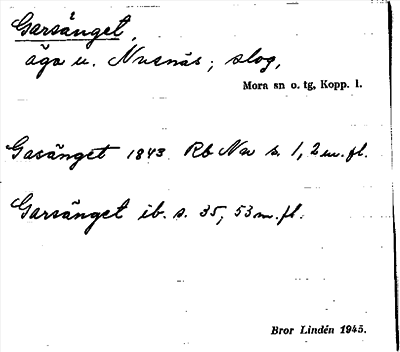 Garsänget,
äga u. Nusnäs; slog,
Mora sn o. tg, Kopp. l.
Gasänget 1843 Rb Na s. 1, 2 m. fl.
Garsänget ib. s. 35, 53 m. fl.
Bror Lindén 1945.